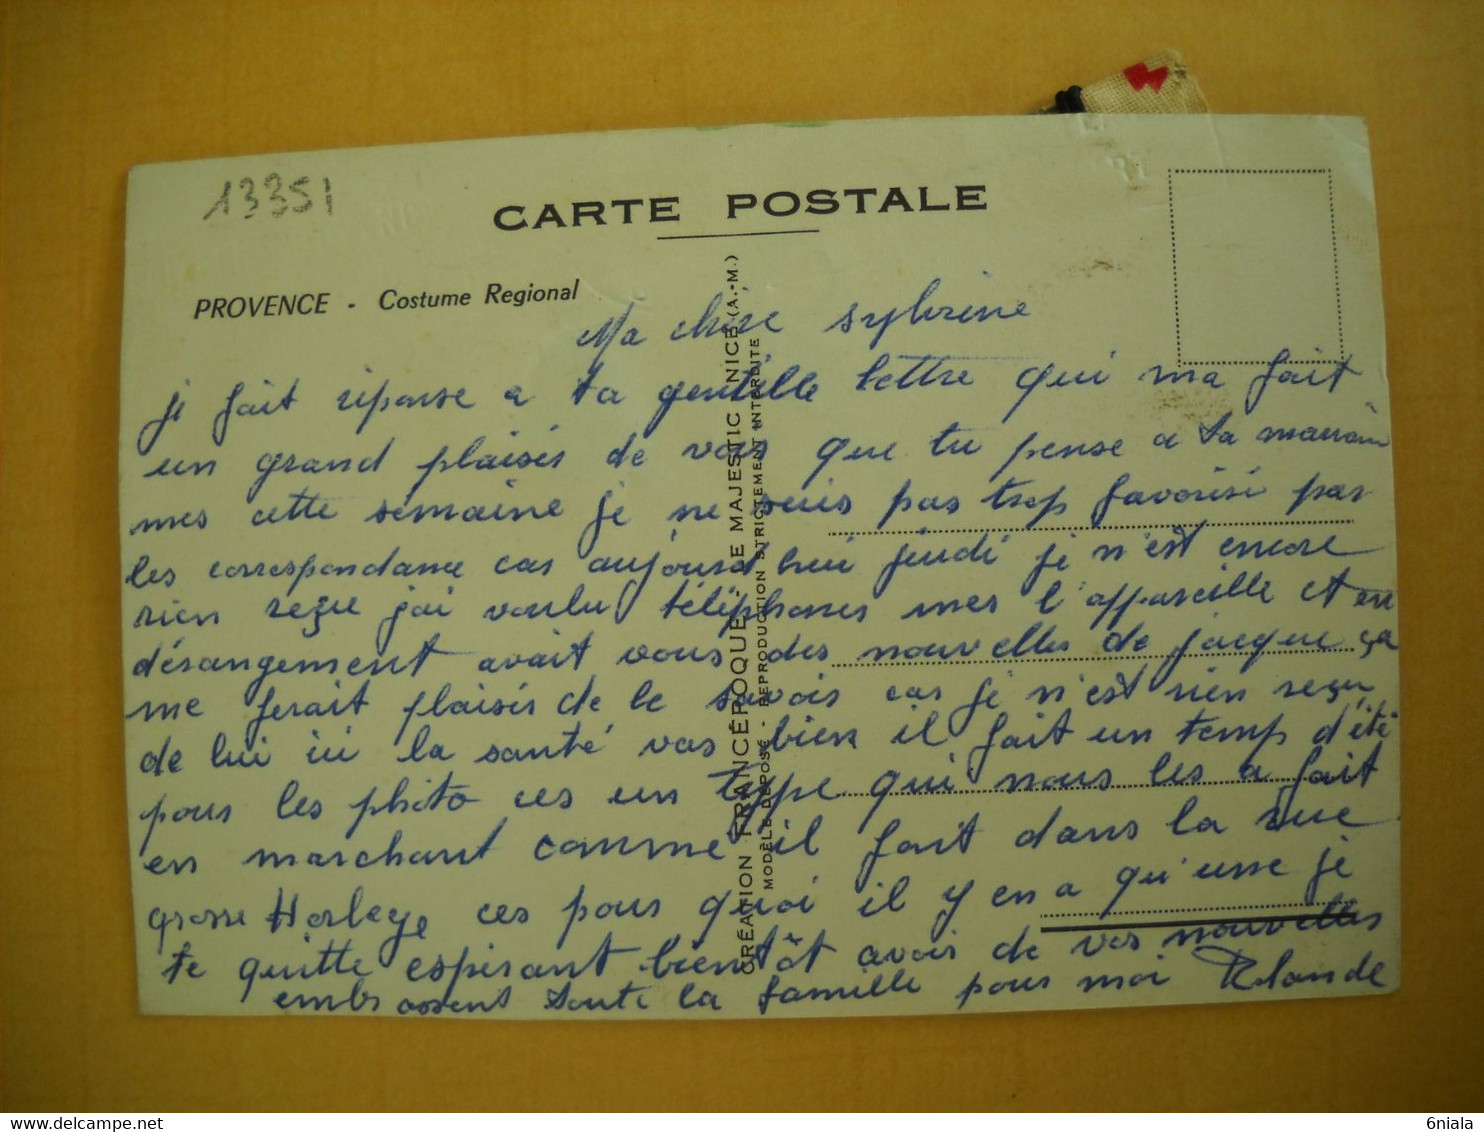 13351
CARTE POSTALE
PROVENCE - Costume Regional
Ma chère sylvrine
je fait réponse a ta gentille lettre qui ma fait
un grand plaisir de voir que tu pense a ta marraine
mes cette semaine je ne suis pas trop favorisé par
les correspondance car aujourd'hui jeudi je n'est encore
rien reçu j'ai voulu téléphoner mes l'appareille et en
dérangement avait vous des nouvelles de jacque ça
me ferait plaisir de le savoir car je n'est rien reçu
de lui ici la santé vas bien il fait un temp d'été
pour les photo ces un type qui nous les a fait
en marchant comme il fait dans la rue
grosse Horloge ces pour quoi il y en a qu'une je
te quitte espérant bientôt avoir de vos nouvelles
embrassent toute la famille pour moi Rolande
CRÉATION FRANCÉPOQUE - LE MAJESTIC NICE (A.-M.)
MODÈLE DÉPOSÉ - REPRODUCTION STRICTEMENT INTERDITE
6niala